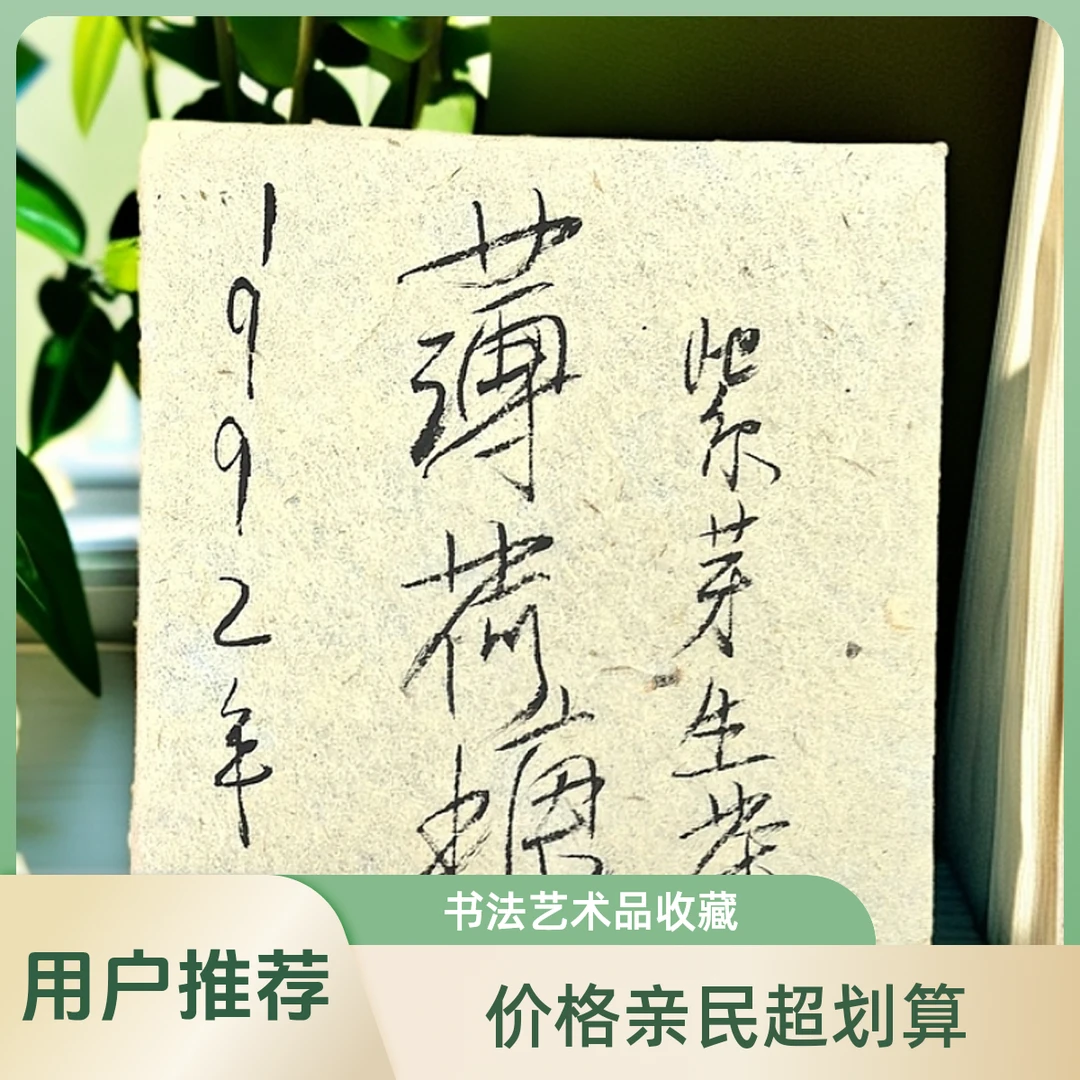 紫芽生茶
薄荷糖
1992年
书法艺术品收藏
用户推荐
价格亲民超划算